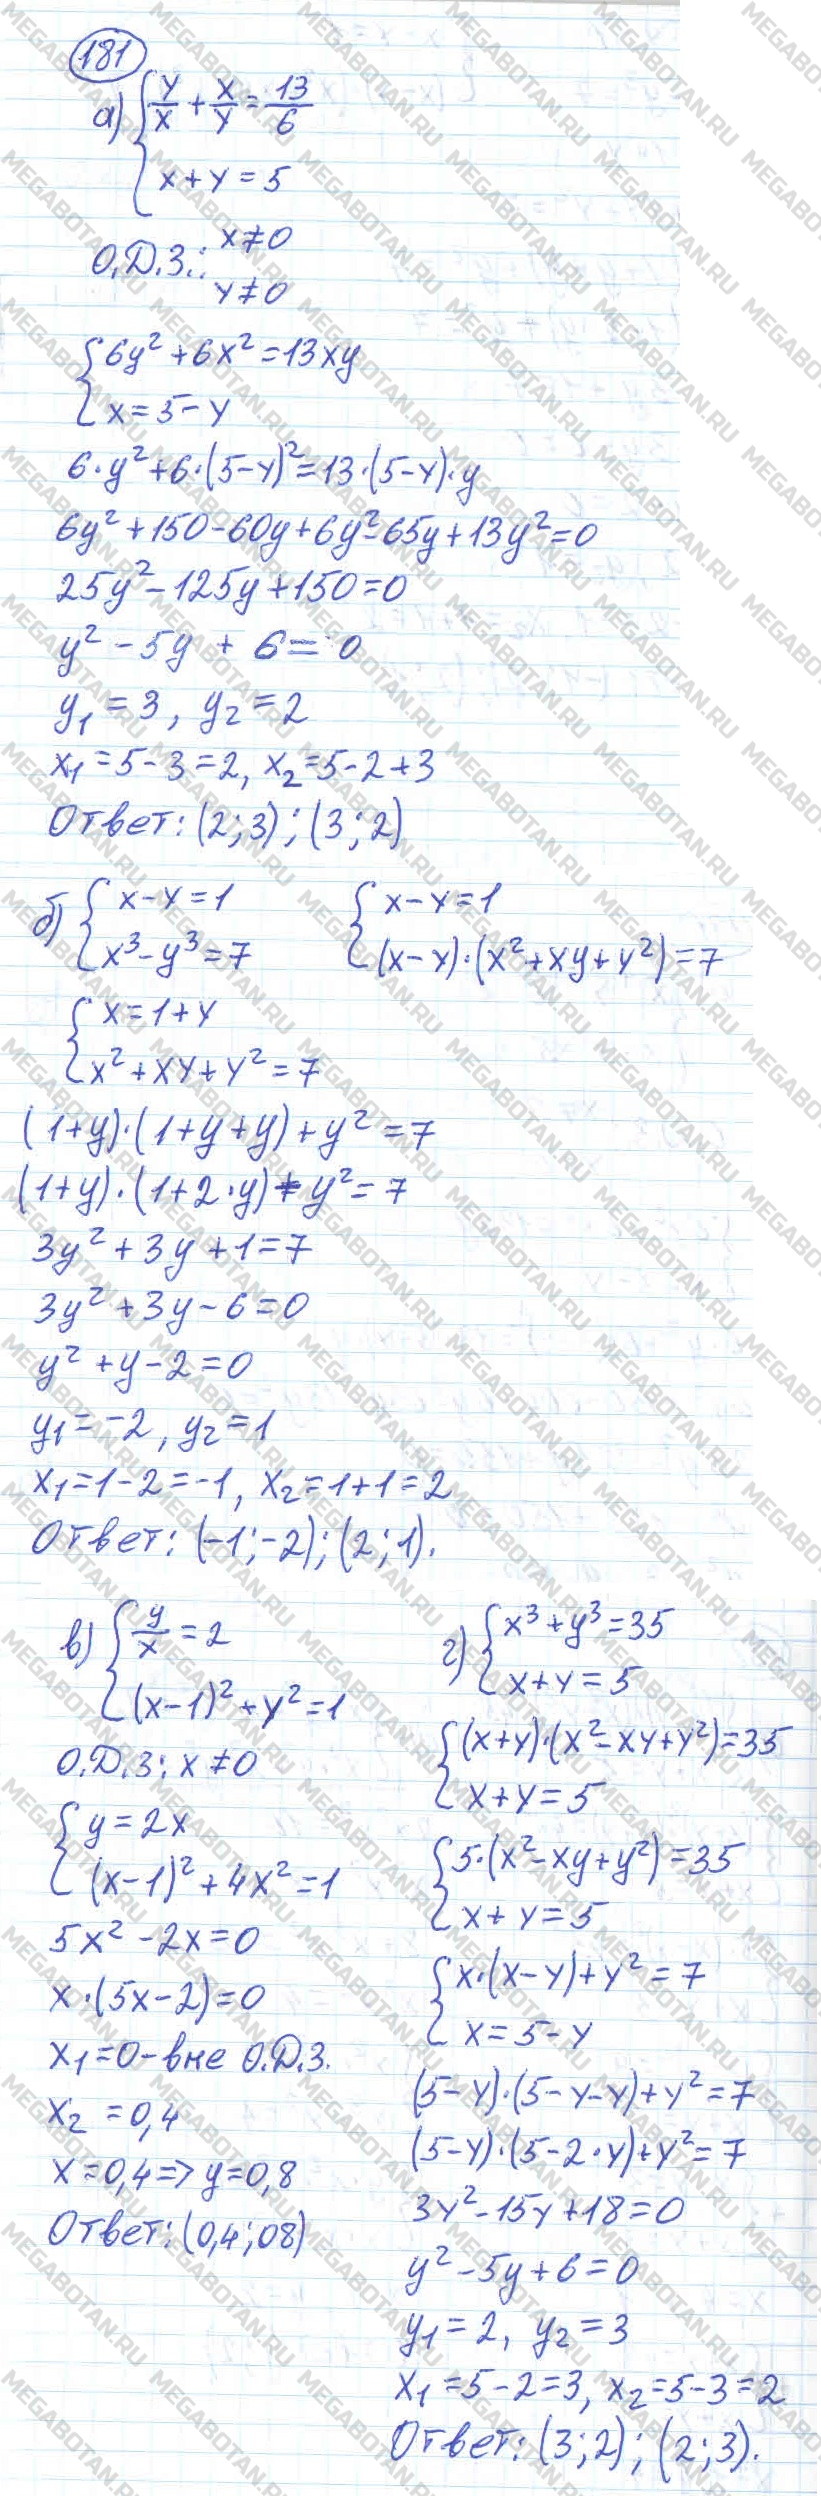 181
а) { y/x + x/y = 13/6
x + y = 5
О.Д.З.: x ≠ 0
y ≠ 0
{ 6y² + 6x² = 13xy
x = 5 - y
6·y² + 6·(5-y)² = 13·(5-y)·y
6y² + 150 - 60y + 6y² - 65y + 13y² = 0
25y² - 125y + 150 = 0
y² - 5y + 6 = 0
y₁ = 3, y₂ = 2
x₁ = 5 - 3 = 2, x₂ = 5 - 2 + 3
Ответ: (2; 3); (3; 2)
б) { x - y = 1
x³ - y³ = 7
{ x - y = 1
(x - y)·(x² + xy + y²) = 7
{ x = 1 + y
x² + xy + y² = 7
(1+y)·(1+y+y) + y² = 7
(1+y)·(1+2·y) + y² = 7
3y² + 3y + 1 = 7
3y² + 3y - 6 = 0
y² + y - 2 = 0
y₁ = -2, y₂ = 1
x₁ = 1 - 2 = -1, x₂ = 1 + 1 = 2
Ответ: (-1; -2); (2; 1).
в) { y/x = 2
(x-1)² + y² = 1
О.Д.З: x ≠ 0
{ y = 2x
(x-1)² + 4x² = 1
5x² - 2x = 0
x·(5x-2) = 0
x₁ = 0 - вне О.Д.З.
x₂ = 0,4
x = 0,4 => y = 0,8
Ответ: (0,4; 08)
г) { x³ + y³ = 35
x + y = 5
{ (x+y)·(x² - xy + y²) = 35
x + y = 5
{ 5·(x² - xy + y²) = 35
x + y = 5
{ x·(x-y) + y² = 7
x = 5 - y
(5-y)·(5-y-y) + y² = 7
(5-y)·(5-2·y) + y² = 7
3y² - 15y + 18 = 0
y² - 5y + 6 = 0
y₁ = 2, y₂ = 3
x₁ = 5 - 2 = 3, x₂ = 5 - 3 = 2
Ответ: (3; 2); (2; 3).
MEGABOTAN.RU